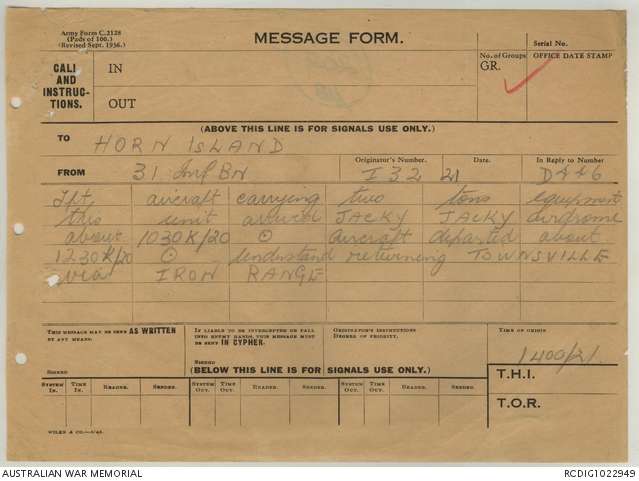 Army Form C.2128
(Pads of 100.)
(Revised Sept. 1936.)
MESSAGE FORM.
Serial No.
CALL AND INSTRUC-TIONS.
IN
OUT
No. of Groups
GR.
OFFICE DATE STAMP
(ABOVE THIS LINE IS FOR SIGNALS USE ONLY.)
TO HORN ISLAND
FROM 31 Inf BN
Originator's Number. I 32
Date. 21
In Reply to Number D446
Tpt aircraft carrying two tons equipment
this unit arrived JACKY JACKY airdrome
about 1030K/20 ⊙ Aircraft departed about
1230K/20 ⊙ understand returning TOWNSVILLE
via IRON RANGE
THIS MESSAGE MAY BE SENT AS WRITTEN
BY ANY MEANS.
SIGNED
IF LIABLE TO BE INTERCEPTED OR FALL
INTO ENEMY HANDS, THIS MESSAGE MUST
BE SENT IN CYPHER.
SIGNED
ORIGINATOR'S INSTRUCTIONS
DEGREE OF PRIORITY.
TIME OF ORIGIN
1400/21
(BELOW THIS LINE IS FOR SIGNALS USE ONLY.)
T.H.I.
T.O.R.
SYSTEM IN. TIME IN. READER. SENDER. SYSTEM OUT. TIME OUT. READER. SENDER. SYSTEM OUT. TIME OUT. READER. SENDER.
AUSTRALIAN WAR MEMORIAL
RCDIG1022949